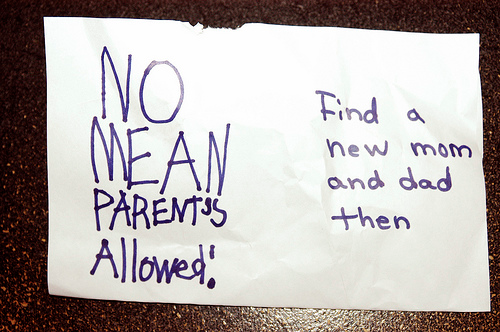 NO
MEAN
PARENTSS
Allowed!
Find a
new mom
and dad
then